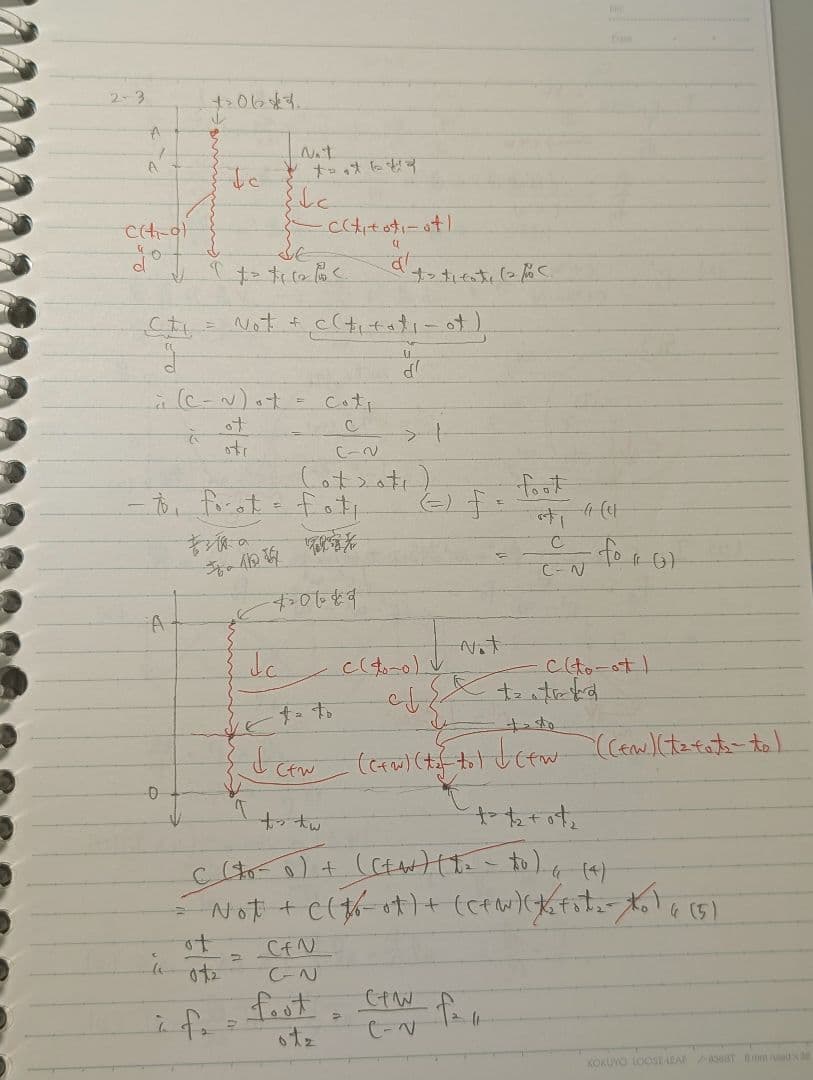 2-3
t=0に出す
A
A'
v⊿t
t=⊿tに出す
↓c
↓c
c(t₁-0)
c(t₁+⊿t₁-⊿t)
d
0
d'
t=t₁に届く
t=t₁+⊿t₁に届く
ct₁ = v⊿t + c(t₁+⊿t₁-⊿t)
d
d'
∴ (c-v)⊿t = c⊿t₁
∴ ⊿t/⊿t₁ = c/(c-v) > 1
(⊿t>⊿t₁)
一方, f₀⊿t = f⊿t₁ (=) f = f₀⊿t/⊿t₁ 〃(1)
音源の 観察者
音の個数
= c/(c-v) f₀ 〃(3)
t=0に出す
A
v⊿t
↓c
c(t₀-0)
c(t₀-⊿t)
c↓
t=⊿tに出す
t=t₀
t=t₀
↓c+w
(c+w)(t₂-t₀)
↓c+w
(c+w)(t₂+⊿t₂-t₀)
0
t=tw
t=t₂+⊿t₂
c(t₀-0) + (c+w)(t₂-t₀) 〃(4)
= v⊿t + c(t₀-⊿t) + (c+w)(t₂+⊿t₂-t₀) 〃(5)
∴ ⊿t/⊿t₂ = (c+v)/(c-v)
∴ f₂ = f₀⊿t/⊿t₂ = (c+w)/(c-v) f₂ 〃
KOKUYO LOOSE-LEAF